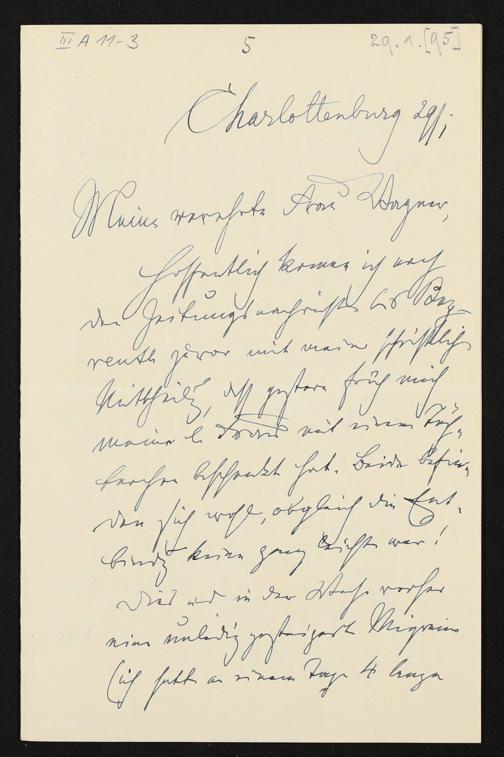 III A 11-3
5
29.1.[95]
Charlottenburg 29/1
Meine verehrte Frau Wagner,
Hoffentlich komme ich noch
den Zeitungsnachrichten bis Bay-
reuth zuvor mit meiner schriftlich
Mittheilg, daß gestern früh mich
meine l. Frau mit einem Töch-
terchen beschenkt hat. Beide befin-
den sich wohl, obgleich die Ent-
bindg keine ganz leichte war!
Dies und in der Woche vorher
eine unleidig gesteigerte Migraine
(ich hatte an einem Tage 4 lange